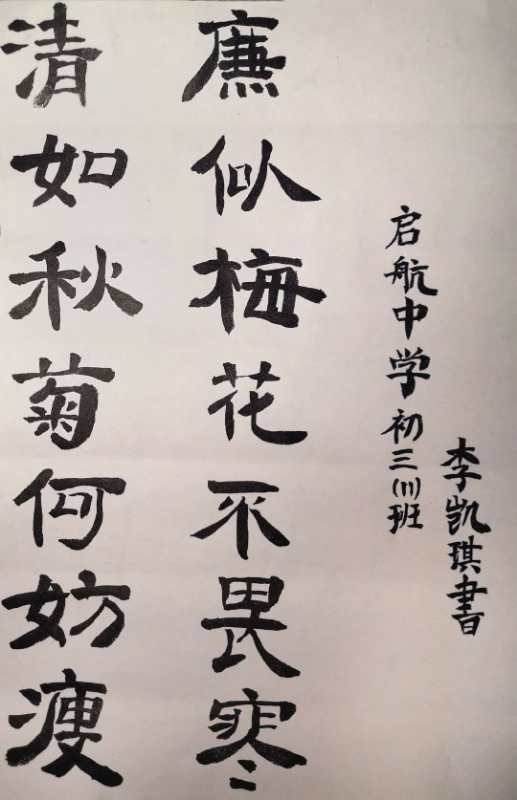 清如秋菊何妨瘦
廉似梅花不畏寒
启航中学初三(11)班
李凯琪書